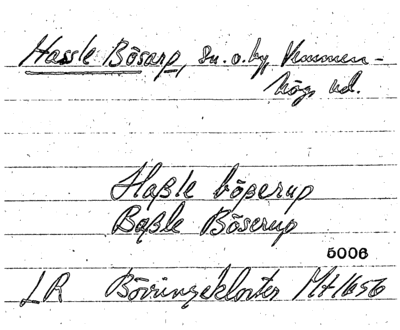 Hassle Bösarp, sn. o. by, Vemmen-
högs hd.
Haßle bößerup
Baßle Böserup
5006
LR Börringekloster Mt 1656